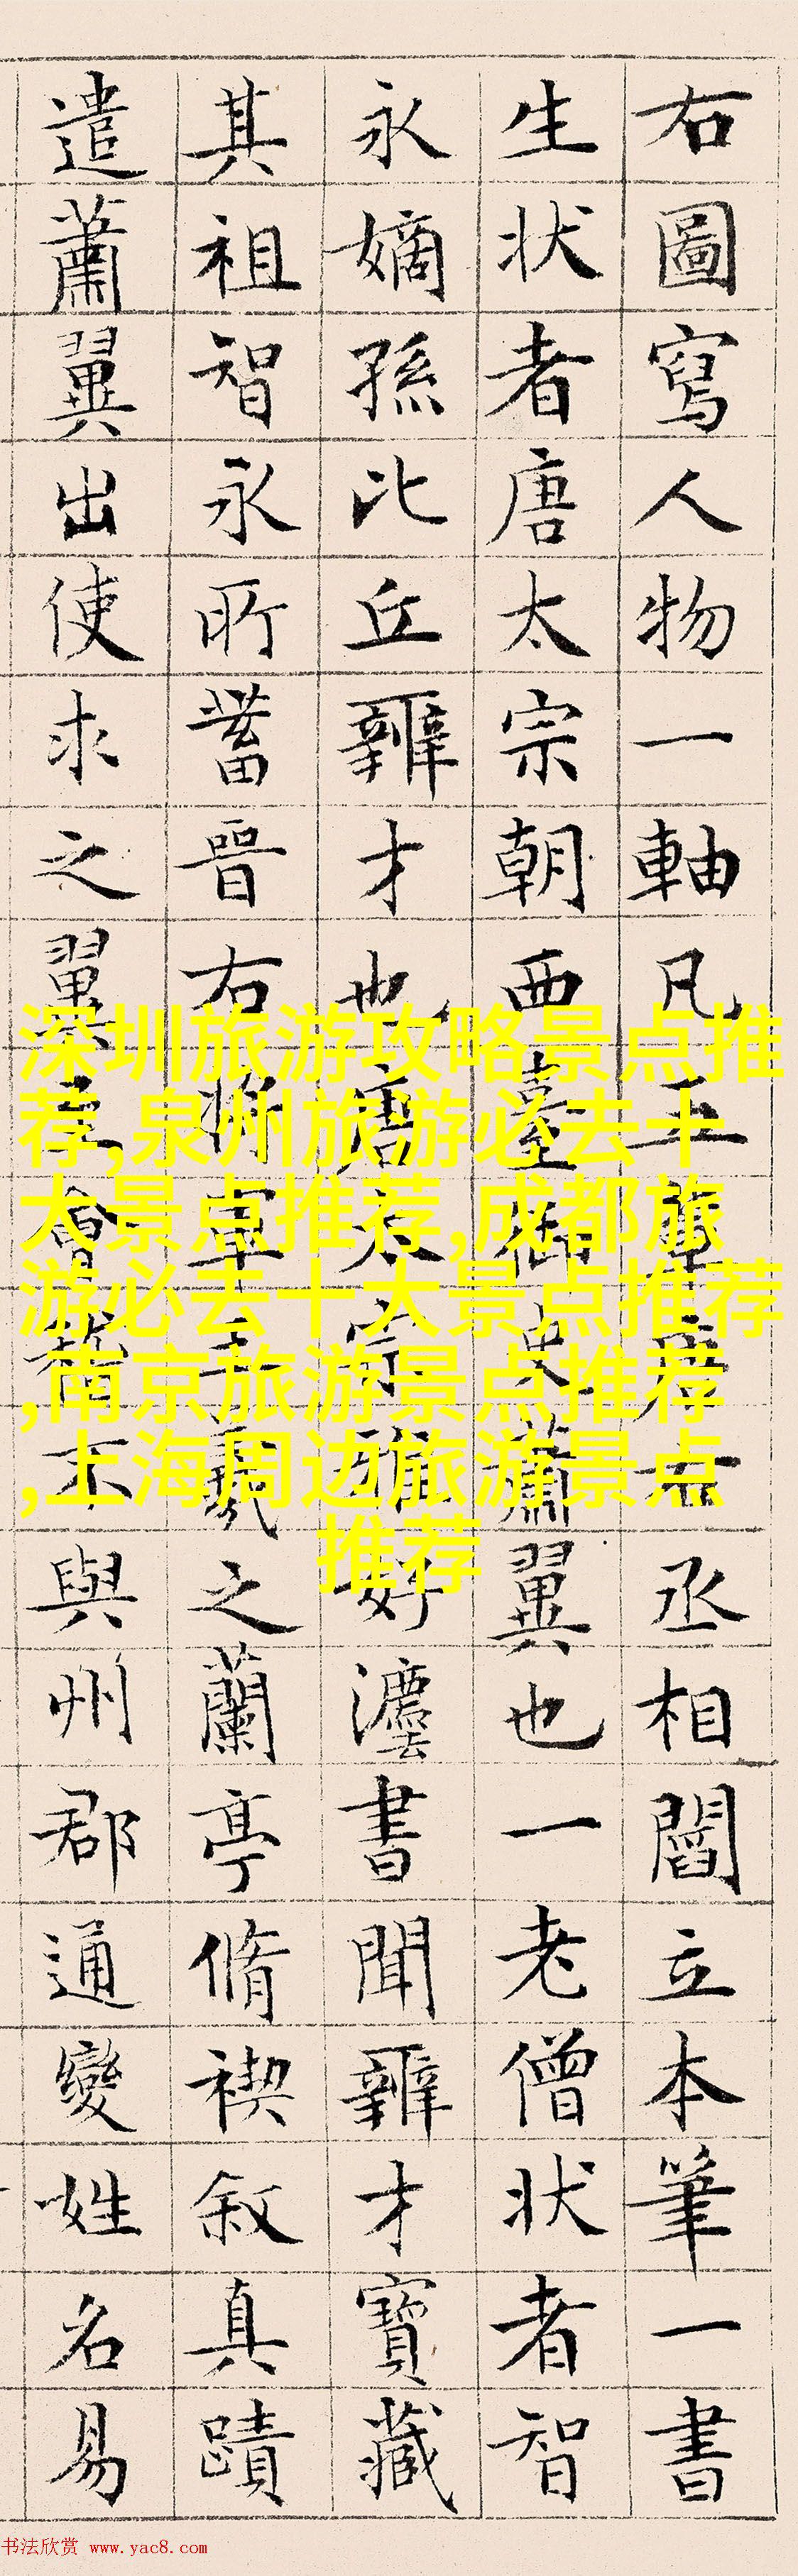 右圖寫人物一軸凡五輩唐右丞相閻立本筆一書
生状者唐太宗朝西臺御史蕭翼也一老僧状者智
永嫡孫比丘辯才也唐太宗雅好灋書聞辯才寶藏
其祖智永所蓄晉右將軍王羲之蘭亭脩禊叙真蹟
遣蕭翼出使求之翼至會稽不與州郡通變姓名易
深圳旅游攻略景点推
荐,泉州旅游必去十
大景点推荐,成都旅
游必去十大景点推荐
,南京旅游景点推荐
,上海周边旅游景点
推荐
书法欣赏 www.yac8.com